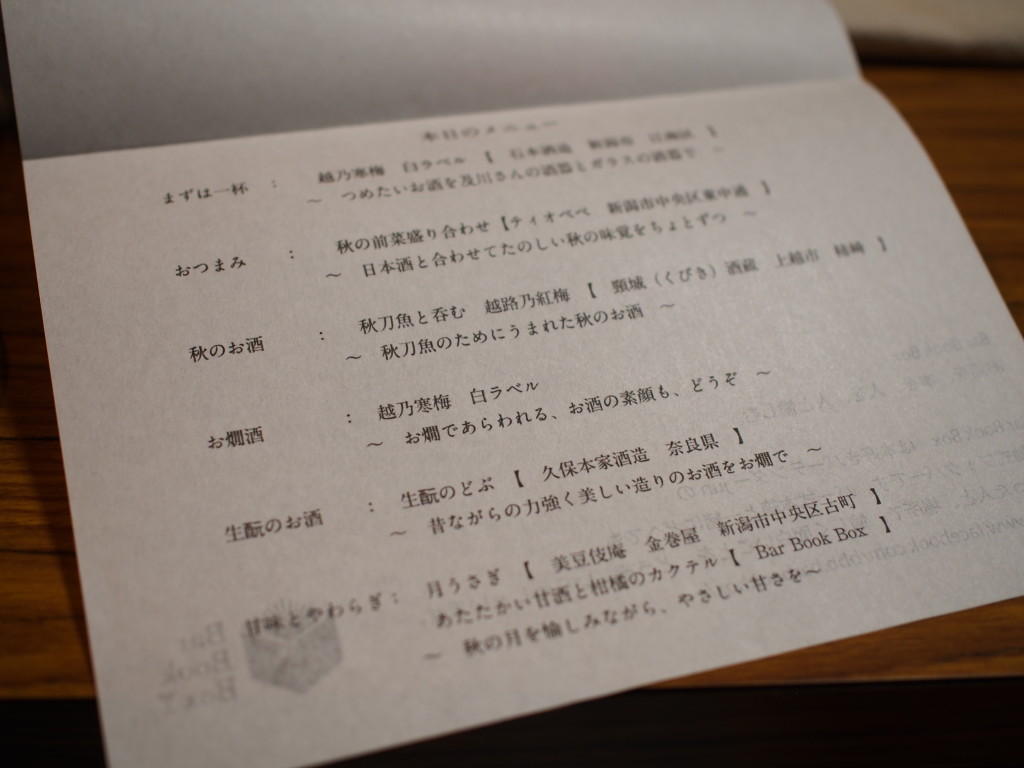 本日のメニュー
まずは一杯 : 越乃寒梅 白ラベル 【 石本酒造 新潟市 江南区 】
～ つめたいお酒を及川さんの酒器とガラスの酒器で ～
おつまみ : 秋の前菜盛り合わせ【ティオペペ 新潟市中央区東中通 】
～ 日本酒と合わせてたのしい秋の味覚をちょとずつ ～
秋のお酒 : 秋刀魚と呑む 越路乃紅梅 【 頸城（くびき）酒蔵 上越市 柿崎 】
～ 秋刀魚のためにうまれた秋のお酒 ～
お燗酒 : 越乃寒梅 白ラベル
～ お燗であらわれる、お酒の素顔も、どうぞ ～
生酛のお酒 : 生酛のどぶ 【 久保本家酒造 奈良県 】
～ 昔ながらの力強く美しい造りのお酒をお燗で ～
甘味とやわらぎ : 月うさぎ 【 美豆伎庵 金巻屋 新潟市中央区古町 】
あたたかい甘酒と柑橘のカクテル【 Bar Book Box 】
～ 秋の月を愉しみながら、やさしい甘さを～
Bar
Book
Box